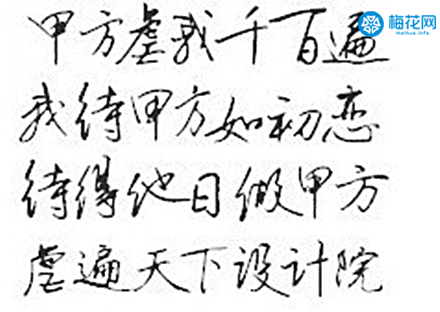 梅花网
meihua.info
甲方虐我千百遍
我待甲方如初恋
待得他日做甲方
虐遍天下设计院